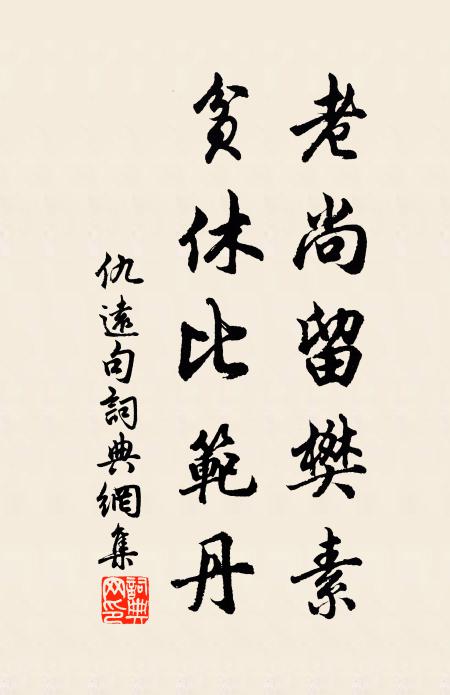 老尚留樊素
貧休比範丹
仇遠句詞典網集
詞典網印